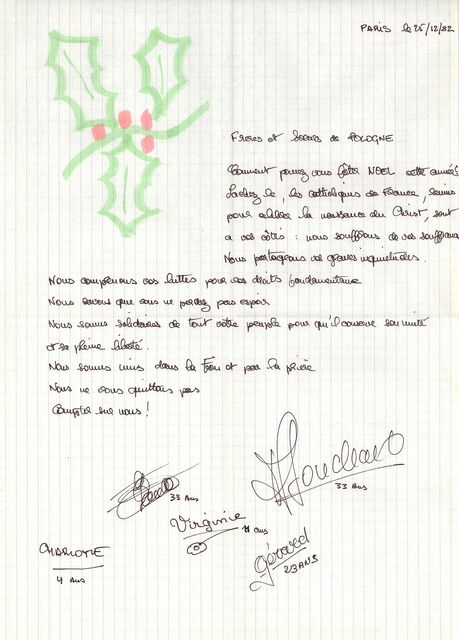 PARIS le 25/12/82
Frères et Soeurs de POLOGNE
Comment pouvez vous fêter NOEL cette année?
Sachez le, les catholiques de France, réunis
pour célébrer la naissance du Christ, sont
a vos côtés : nous souffrons de vos souffrances
Nous partageons vos graves inquiétudes.
Nous comprenons vos luttes pour vos droits fondamentaux
Nous savons que vous ne perdez pas espoir
Nous sommes solidaires de tout votre peuple pour qu'il conserve son unité
et sa pleine liberté.
Nous sommes unis dans la Foi et par la prière
Nous ne vous quittons pas
Compter sur nous!
33 Ans
33 ans
Virginie
11 ans
CHARLOTTE
4 ans
gérard
23 ANS